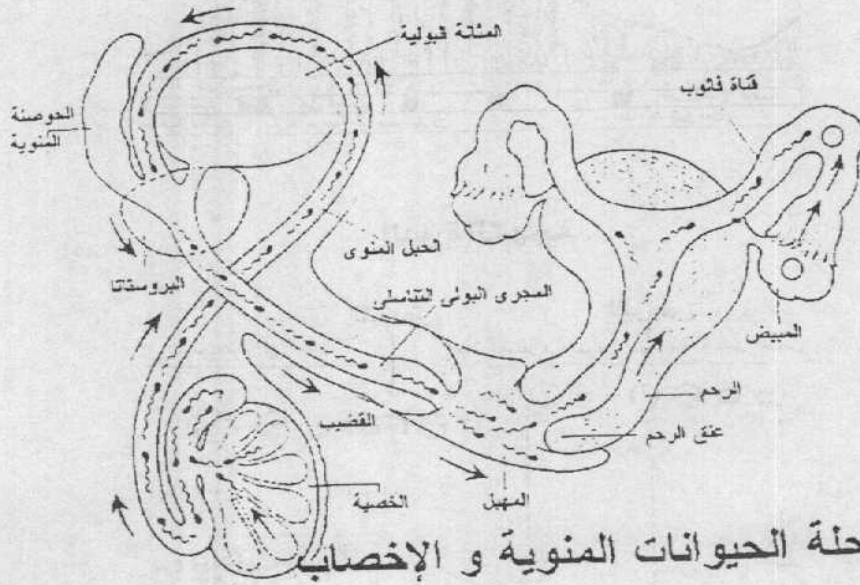 المثانة البولية
قناة فالوب
الحوصنة
المنوية
الحبل المنوى
البروستاتا
المجرى البولى التناسلى
المبيض
الرحم
القضيب
عنق الرحم
المهبل
الخصية
حلة الحيوانات المنوية و الإخصاب